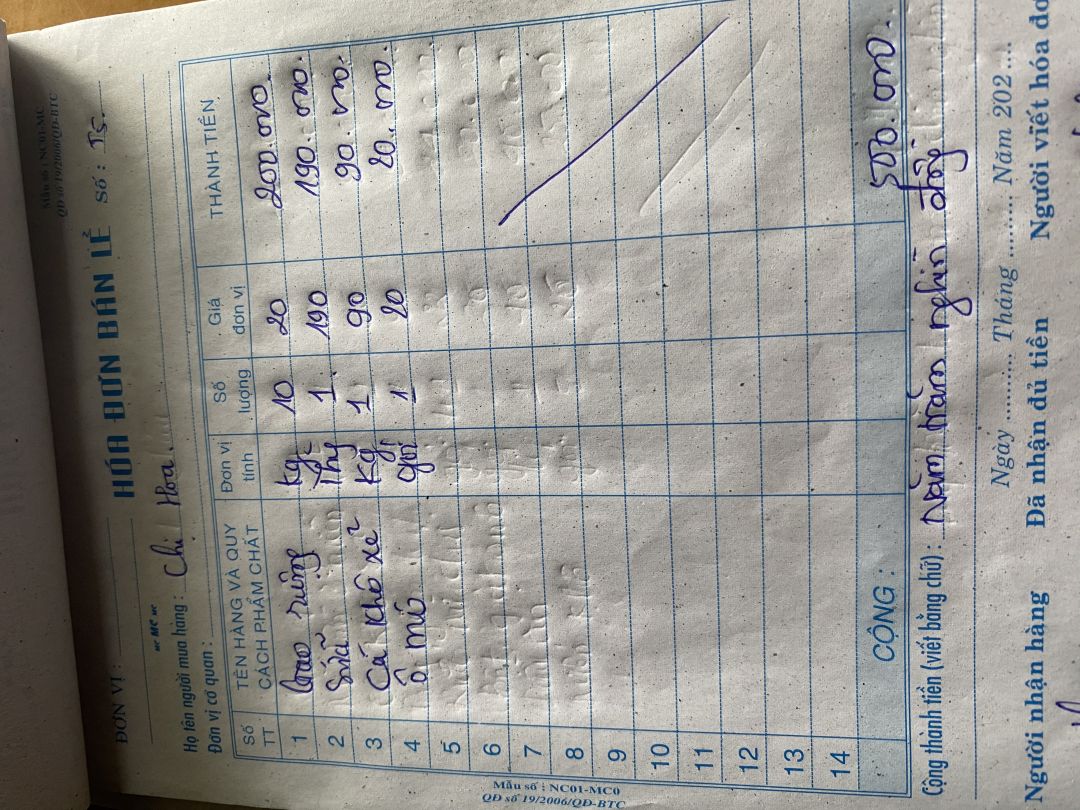 Mẫu số : NC01-MC
QĐ số 19/2006/QĐ-BTC
ĐƠN VỊ :
HÓA ĐƠN BÁN LẺ
Số : 15.
Họ tên người mua hàng : Chị Hoa.
Đơn vị cơ quan :
Số TT | TÊN HÀNG VÀ QUY CÁCH PHẨM CHẤT | Đơn vị tính | Số lượng | Giá đơn vị | THÀNH TIỀN
1 | Gạo | kg | 10 | 20 | 200.000.
2 | Sữa | | 1 | 190 | 190.000.
3 | Cá khô xẻ | kg | 1 | 90 | 90.000.
4 | Ô mú | gói | 1 | 20 | 20.000.
5
6
7
8
9
10
11
12
13
14
CỘNG : 500.000.
Cộng thành tiền (viết bằng chữ) : Năm trăm nghìn đồng
Ngày ............ Tháng ............ Năm 202 ...
Người nhận hàng Đã nhận đủ tiền Người viết hóa đơ
Mẫu số : NC01-MC0
QĐ số 19/2006/QĐ-BTC